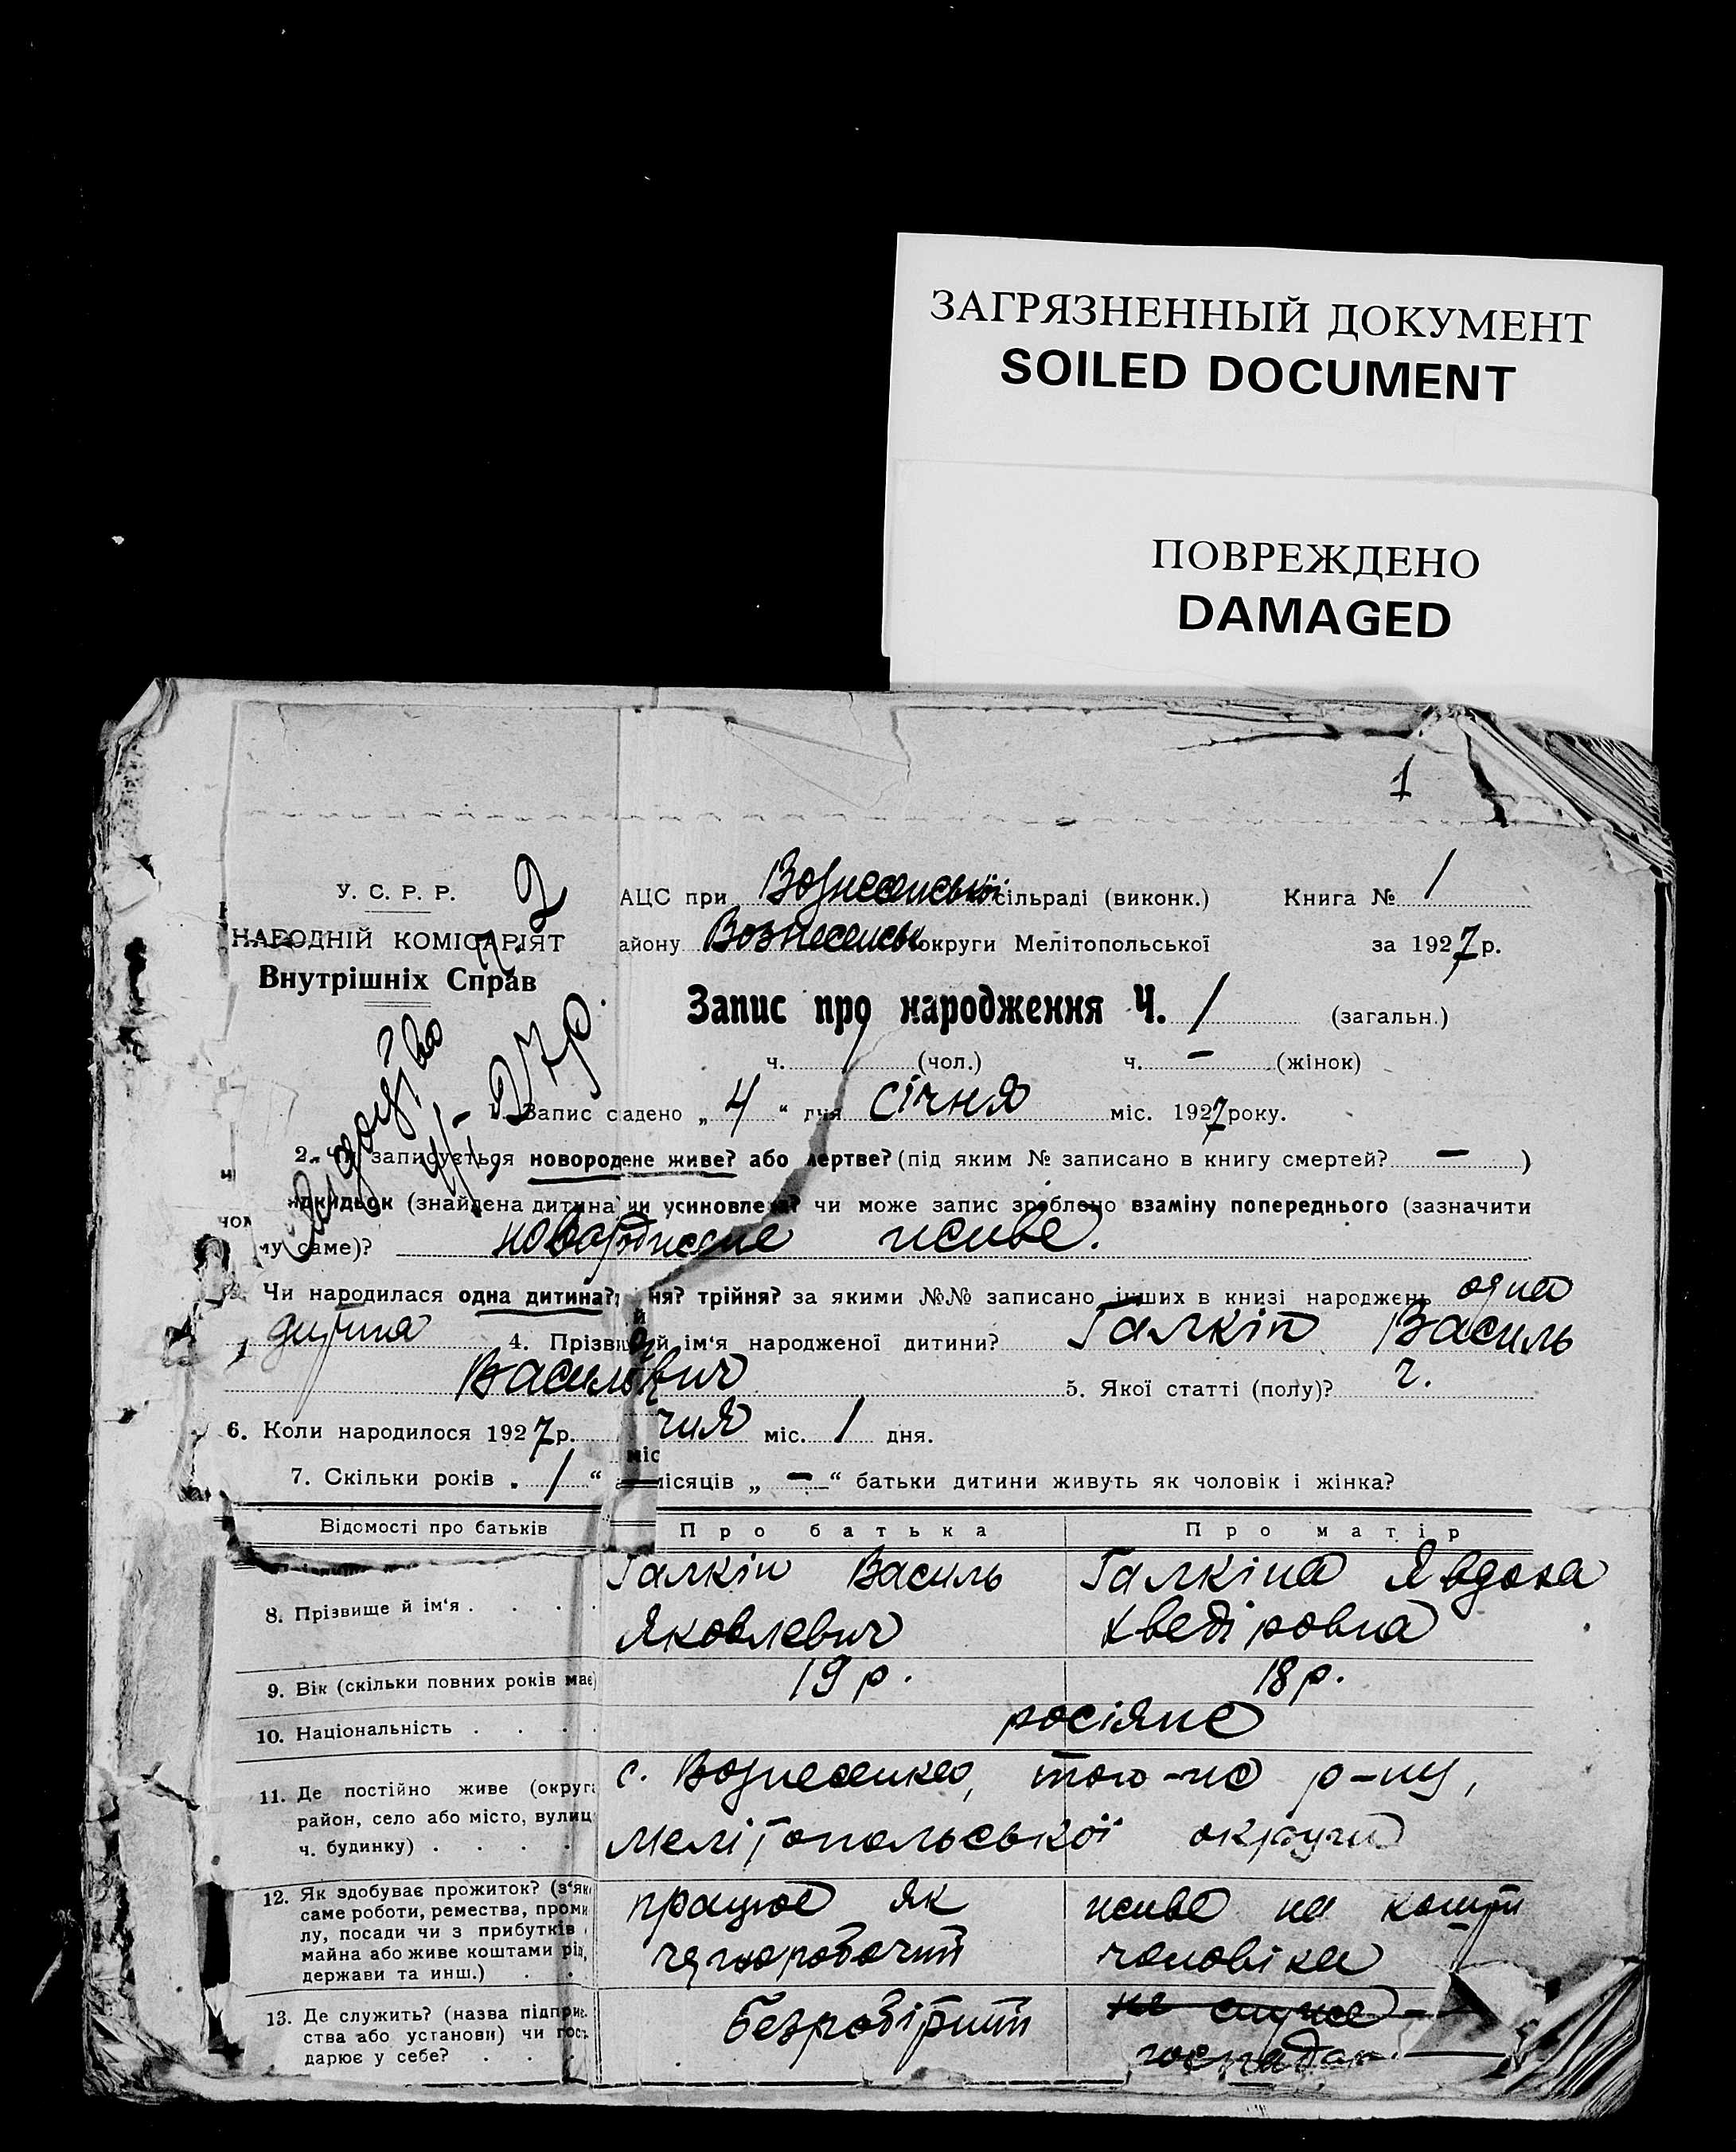 ЗАГРЯЗНЕННЫЙ ДОКУМЕНТ
SOILED DOCUMENT
ПОВРЕЖДЕНО
DAMAGED
1
У. С. Р. Р.
НАРОДНІЙ КОМІСАРІЯТ
Внутрішніх Справ
АЦС при Вознесенській сільраді (виконк.) Книга № 1
айону Вознесенськ округи Мелітопольської за 1927 р.
Запис про народження Ч. 1 (загальн.)
ч. (чол.) ч. — (жінок)
Запис складено „ 4 “ дня січня міс. 1927 року.
2. записується новородене живе? або мертве? (під яким № записано в книгу смертей? — )
ідкидьок (знайдена дитина чи усиновлена? чи може запис зроблено взаміну попереднього (зазначити
чом му саме)? новороджене живе.
Чи народилася одна дитина? ня? трійня? за якими №№ записано інших в книзі народжень одна
дитина 4. Прізвище й ім'я народженої дитини? Галкін Василь
Васильович 5. Якої статті (полу)? ч.
6. Коли народилося 1927 р. чня міс. 1 дня.
7. Скільки років „ 1 “ місяців „ — “ батьки дитини живуть як чоловік і жінка?
Відомості про батьків Про батька Про матір
8. Прізвище й ім'я . . . . Галкін Василь Яковлевич Галкіна Явдоха Хведіровна
9. Вік (скільки повних років має) 19 р. 18 р.
10. Національність . . . . росіяне
11. Де постійно живе (округа с. Вознесенка, того-же р-ну,
район, село або місто, вулиц Мелітопольської округи
ч. будинку) . . . .
12. Як здобуває прожиток? (з'яко працює як живе на кошти
саме роботи, ремества, проми
лу, посади чи з прибутків чорноробочий чоловіка
майна або живе коштами рід,
держави та инш.) . .
13. Де служить? (назва підприє безробітний не служе
ства або установи) чи госп
дарює у себе? . . . .